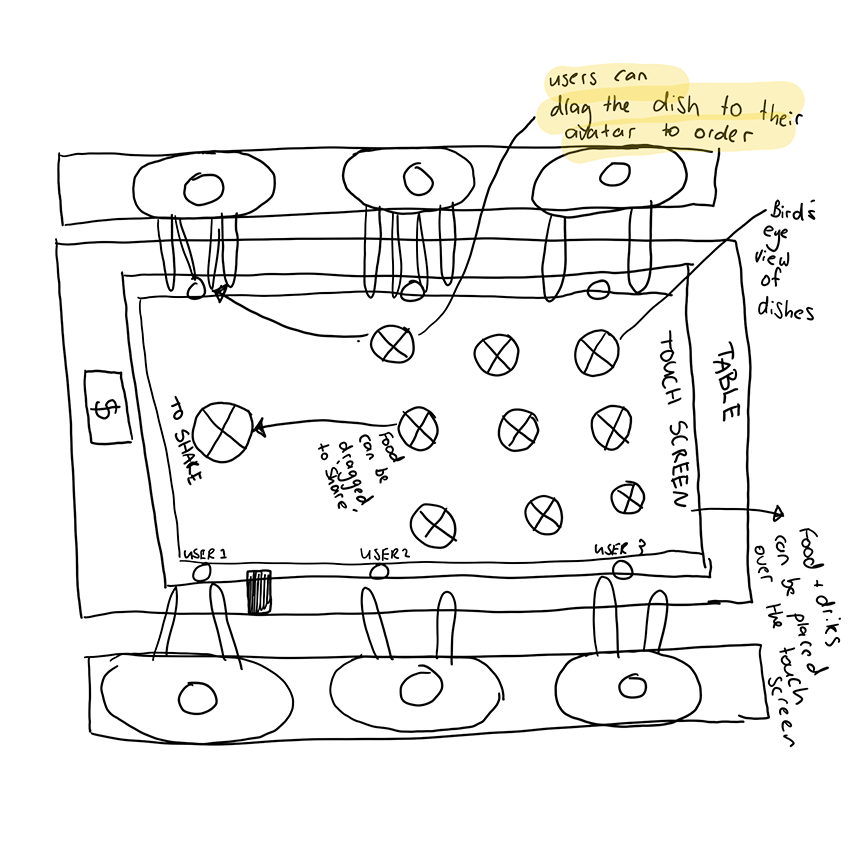 users can
drag the dish to their
avatar to order
Bird's
eye
view
of
dishes
TABLE
TOUCH SCREEN
$
TO SHARE
Food
can be
dragged
to share.
USER 1
USER 2
USER 3
Food + driks
can be placed
over the touch
screen